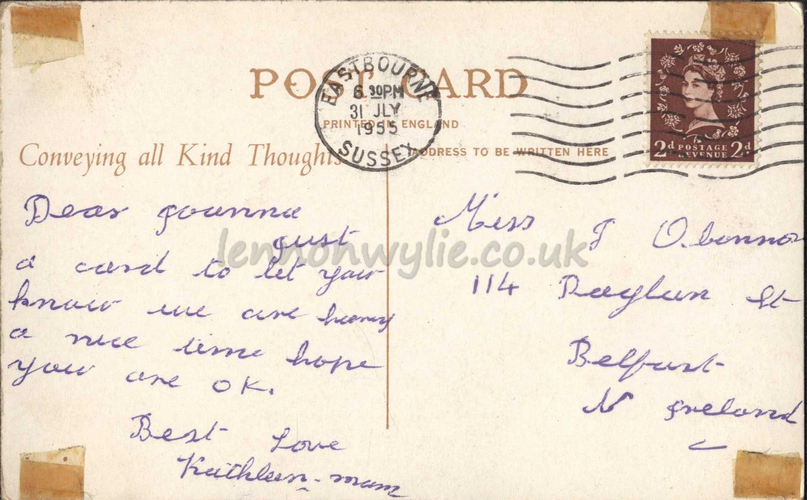 POST CARD
EASTBOURNE
6 30PM
31 JLY
1955
SUSSEX
PRINTED IN ENGLAND
Conveying all Kind Thoughts
ADDRESS TO BE WRITTEN HERE
2d POSTAGE REVENUE 2d
Dear Joanna
Just
a card to let you
know we are having
a nice time hope
you are OK.
Best Love
Kathleen - mam
Miss J O'Connor
114 Raglan St
Belfast
N Ireland
lennonwylie.co.uk